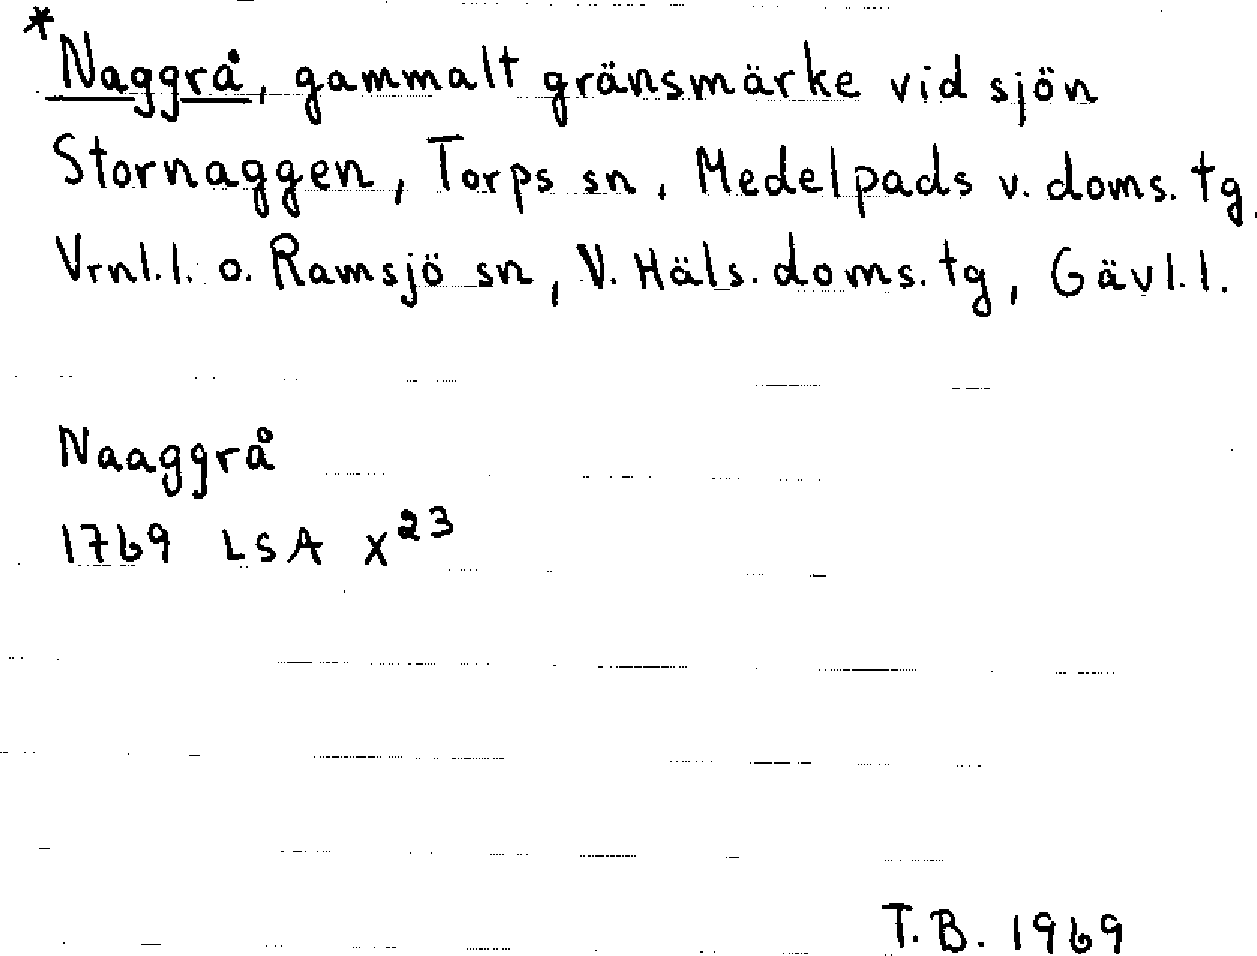 *Naggrå, gammalt gränsmärke vid sjön
Stornaggen, Torps sn, Medelpads v. doms. tg,
Vrnl.l. o. Ramsjö sn, V. Häls. doms. tg, Gävl.l.
Naaggrå
1769 LSA X23
T.B. 1969